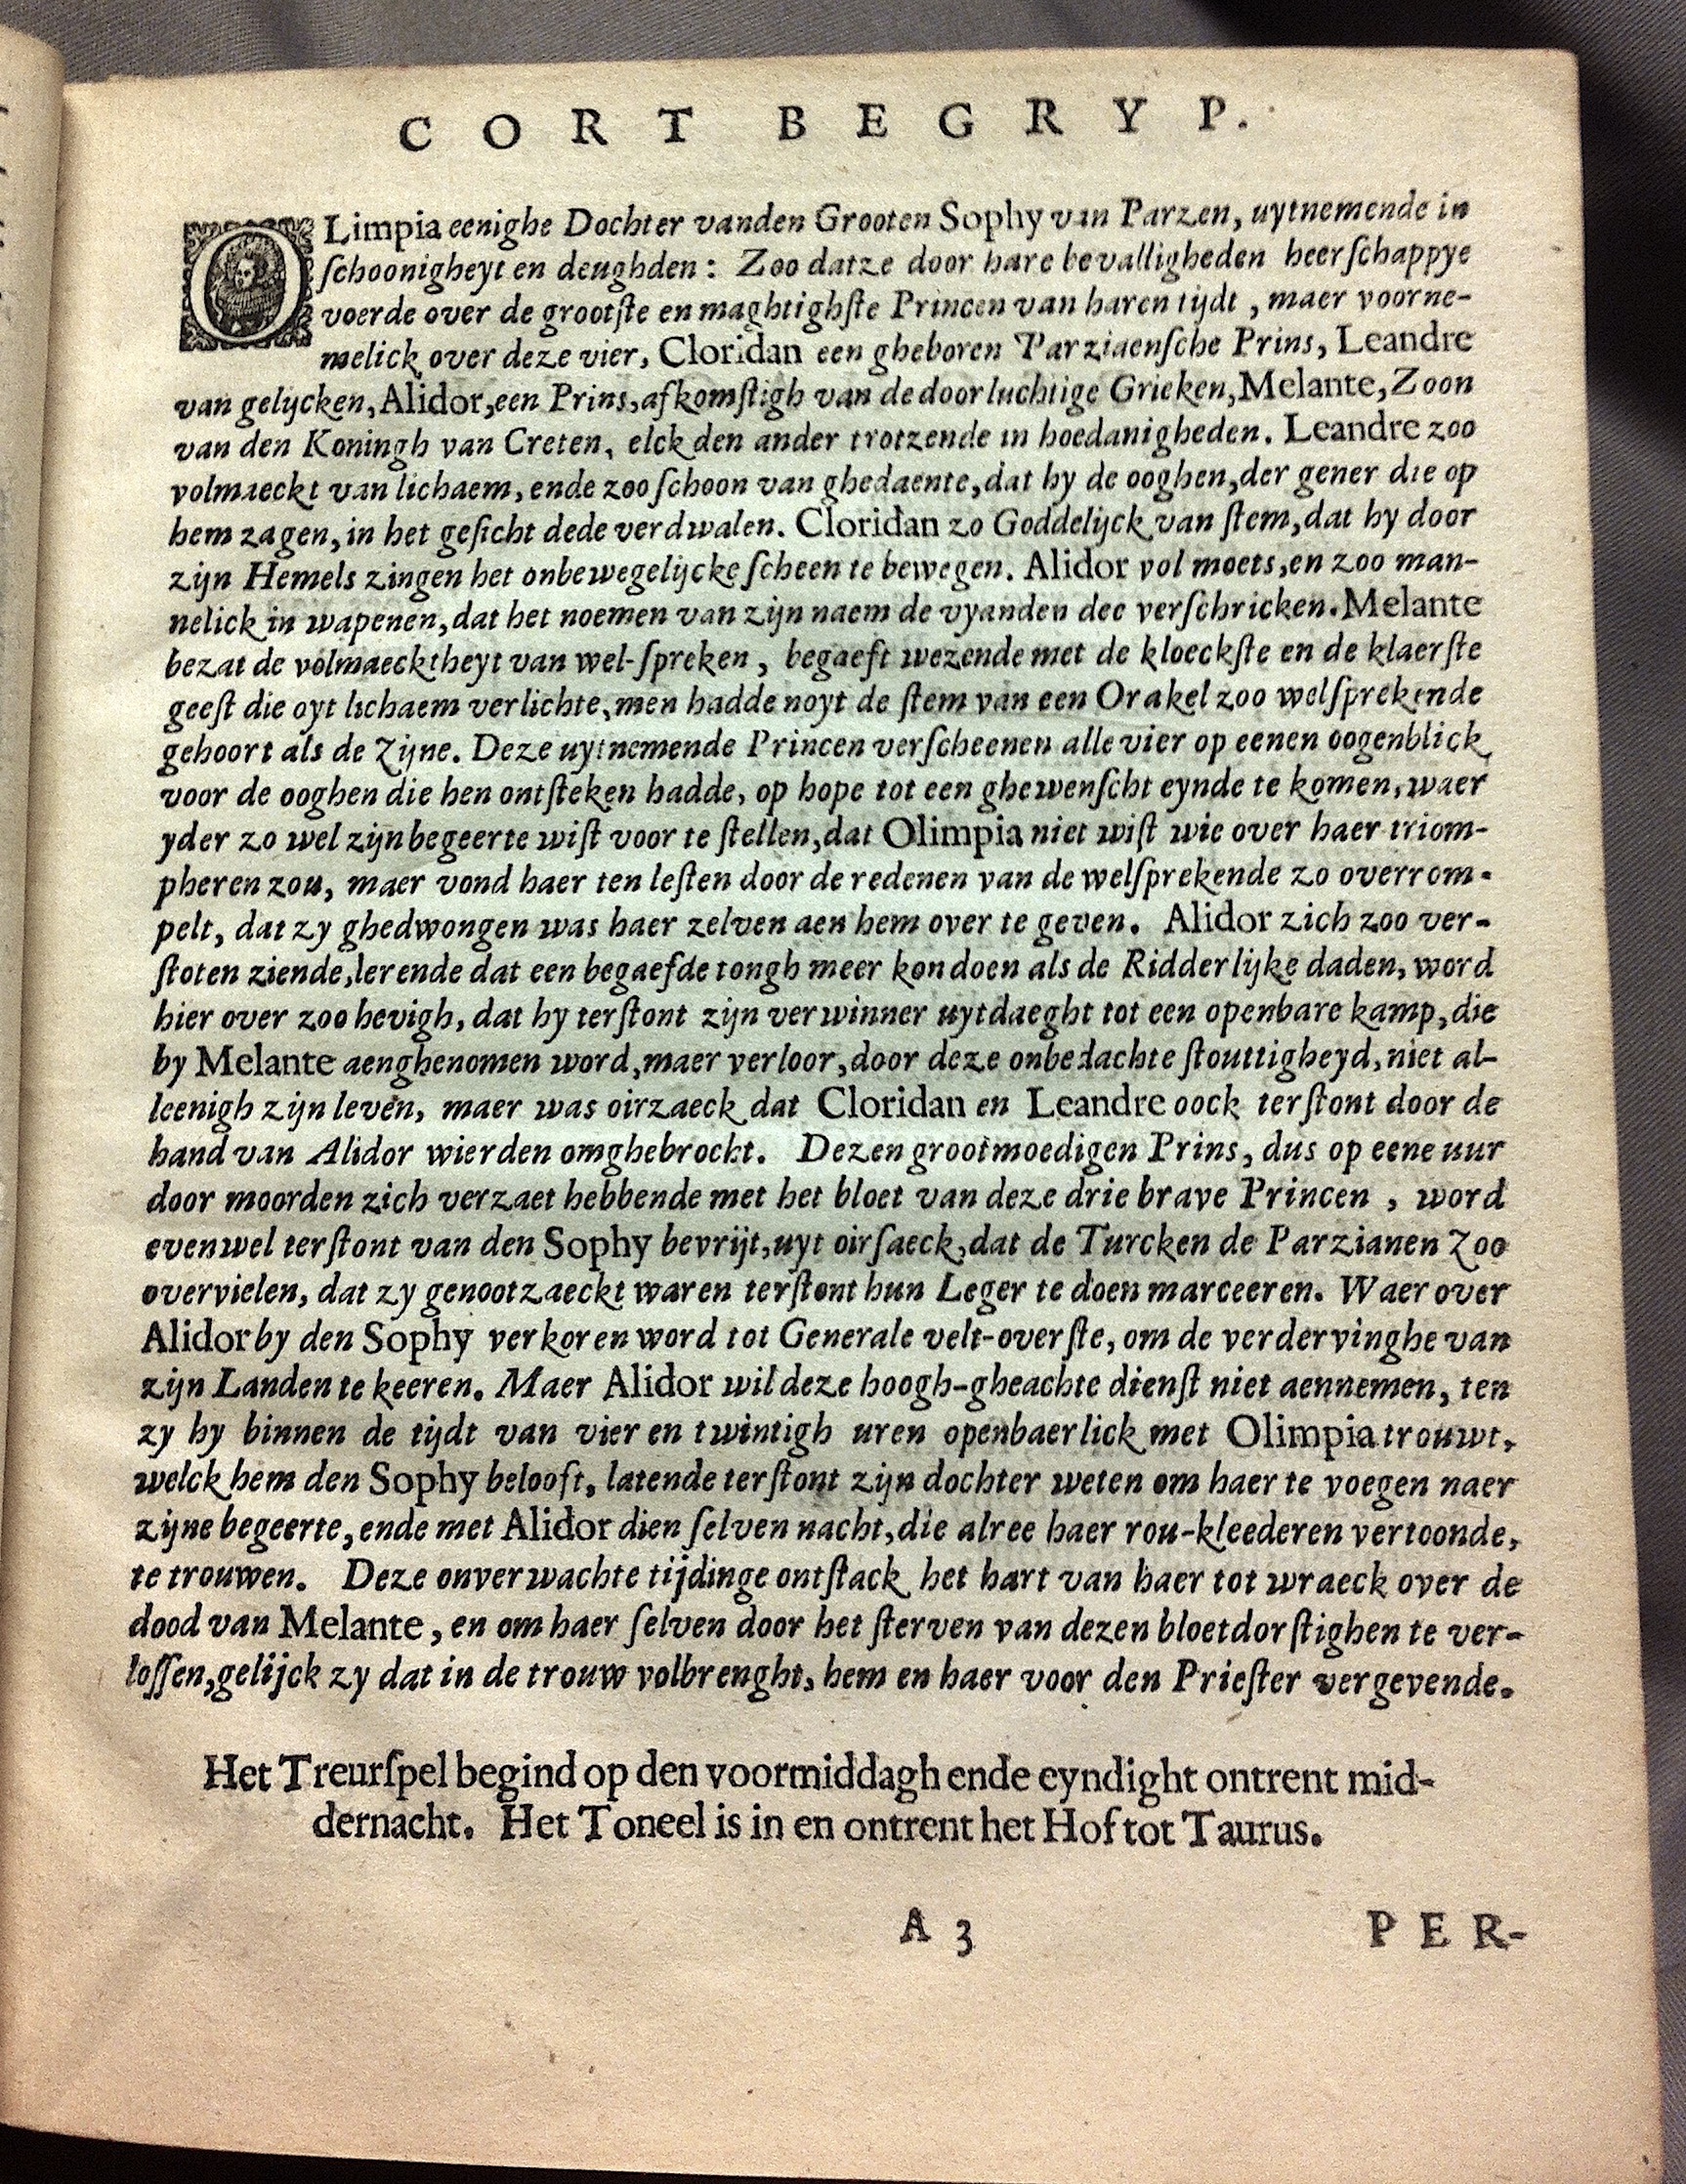 CORT BEGRYP.
OLimpia eenighe Dochter vanden Grooten Sophy van Parzen, uytnemende in
ſchoonigheyt en deughden: Zoo datze door hare bevalligheden heerſchappye
voerde over de grootſte en maghtighſte Princen van haren tijdt, maer voorne-
melick over deze vier, Cloridan een gheboren Parziaenſche Prins, Leandre
van gelijcken, Alidor, een Prins, afkomſtigh van de doorluchtige Grieken, Melante, Zoon
van den Koningh van Creten, elck den ander trotzende in hoedanigheden. Leandre zoo
volmaeckt van lichaem, ende zoo ſchoon van ghedaente, dat hy de ooghen, der gener die op
hem zagen, in het geſicht dede verdwalen. Cloridan zo Goddelijck van ſtem, dat hy door
zijn Hemels zingen het onbewegelijcke ſcheen te bewegen. Alidor vol moets, en zoo man-
nelick in wapenen, dat het noemen van zijn naem de vyanden dee verſchricken. Melante
bezat de volmaecktheyt van wel-ſpreken, begaeft wezende met de kloeckſte en de klaerſte
geeſt die oyt lichaem verlichte, men hadde noyt de ſtem van een Orakel zoo welſprekende
gehoort als de Zijne. Deze uytnemende Princen verſcheenen alle vier op eenen oogenblick
voor de ooghen die hen ontſteken hadde, op hope tot een ghewenſcht eynde te komen, waer
yder zo wel zijn begeerte wiſt voor te ſtellen, dat Olimpia niet wiſt wie over haer triom-
pheren zou, maer vond haer ten leſten door de redenen van de welſprekende zo overrom-
pelt, dat zy ghedwongen was haer zelven aen hem over te geven. Alidor zich zoo ver-
ſtoten ziende, lerende dat een begaefde tongh meer kon doen als de Ridderlijke daden, word
hier over zoo hevigh, dat hy terſtont zijn verwinner uytdaeght tot een openbare kamp, die
by Melante aenghenomen word, maer verloor, door deze onbedachte ſtouttigheyd, niet al-
leenigh zijn leven, maer was oirzaeck dat Cloridan en Leandre oock terſtont door de
hand van Alidor wierden omghebrocht. Dezen grootmoedigen Prins, dus op eene uur
door moorden zich verzaet hebbende met het bloet van deze drie brave Princen, word
evenwel terſtont van den Sophy bevrijt, uyt oirſaeck, dat de Turcken de Parzianen Zoo
overvielen, dat zy genootzaeckt waren terſtont hun Leger te doen marceeren. Waer over
Alidor by den Sophy verkoren word tot Generale velt-overſte, om de verdervinghe van
zijn Landen te keeren. Maer Alidor wil deze hoogh-gheachte dienſt niet aennemen, ten
zy hy binnen de tijdt van vier en twintigh uren openbaerlick met Olimpia trouwt,
welck hem den Sophy belooft, latende terſtont zijn dochter weten om haer te voegen naer
zijne begeerte, ende met Alidor dien ſelven nacht, die alree haer rou-kleederen vertoonde,
te trouwen. Deze onverwachte tijdinge ontſtack het hart van haer tot wraeck over de
dood van Melante, en om haer ſelven door het ſterven van dezen bloetdorſtighen te ver-
loſſen, gelijck zy dat in de trouw volbrenght, hem en haer voor den Prieſter vergevende.
Het Treurſpel begind op den voormiddagh ende eyndight ontrent mid-
dernacht. Het Toneel is in en ontrent het Hof tot Taurus.
A 3
PER-